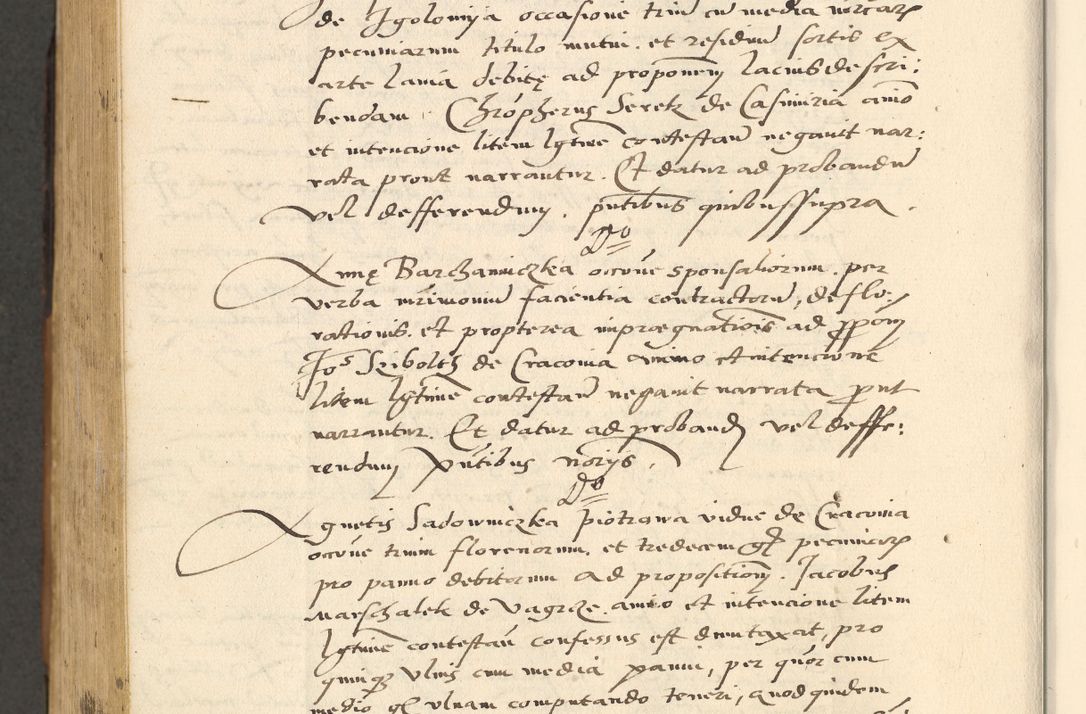 de Igolomija occasione trium cu media mrcar
pecuniarum titulo mutui. et residuu sortis ex
arte lania debitę ad proponem lacius descri:
bendam. Chrophorus Seretz de Casimiria animo
et intencione litem lgtime contestan negauit nar:
rata prout narrantur. Et datur ad probandu
vel defferendum. pntibus quibus supra.
Do
Annę Barchaniczka occone sponsaliorum per
verba mrimoniu facientia contractoru, deflo:
rationis. et propterea impraegnationis ad ppom
Jos Sziboltz de Cracouia animo et intencione
litem lgtime contestan negauit narrata prout
narrantur. Et datur ad proband vel deffe:
rendum pntibus norijs.
Do
Agnetis Sadowniczka piotrowa vidue de Cracouia
occone trium florenorum. et tredecem gr pecuniar
pro panno debitorum ad propositionem. Jacobus
Marschalek de Vagrcze animo et intencione litem
lgtime contestan confessus est dumtaxat, pro
quinq vlnis cum media panni, per quor cum
medio gr vlnam computando teneri, quod quidem